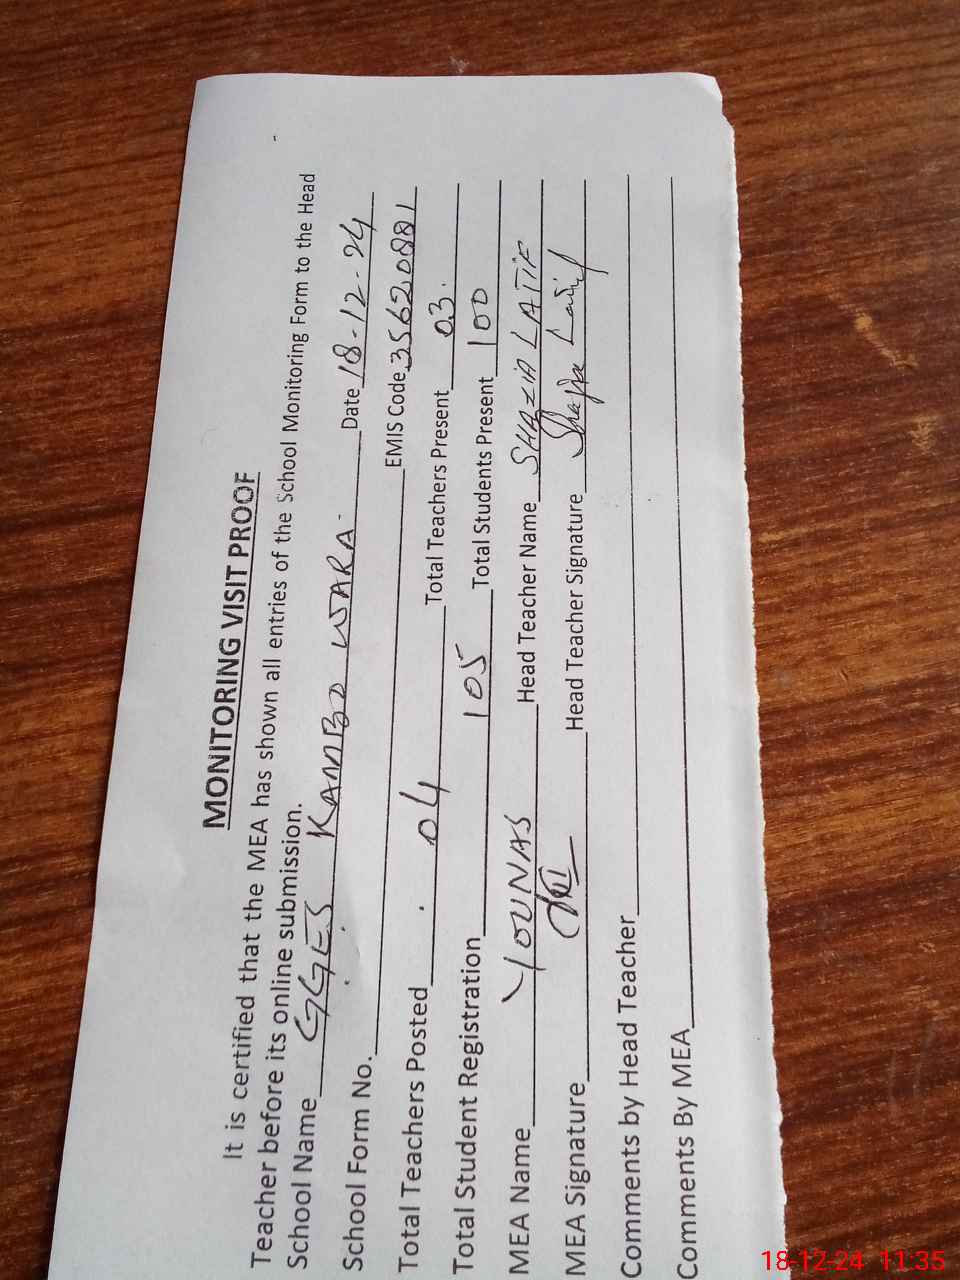 MONITORING VISIT PROOF
It is certified that the MEA has shown all entries of the School Monitoring Form to the Head
Teacher before its online submission.
School Name GGES KAMBO WARA Date 18-12-24
School Form No. EMIS Code 35620881
Total Teachers Posted 04 Total Teachers Present 03.
Total Student Registration 105 Total Students Present 100
MEA Name YOUNAS Head Teacher Name SHAZIA LATIF
MEA Signature Head Teacher Signature Shazia Latif
Comments by Head Teacher
Comments By MEA
18-12-24 11:35